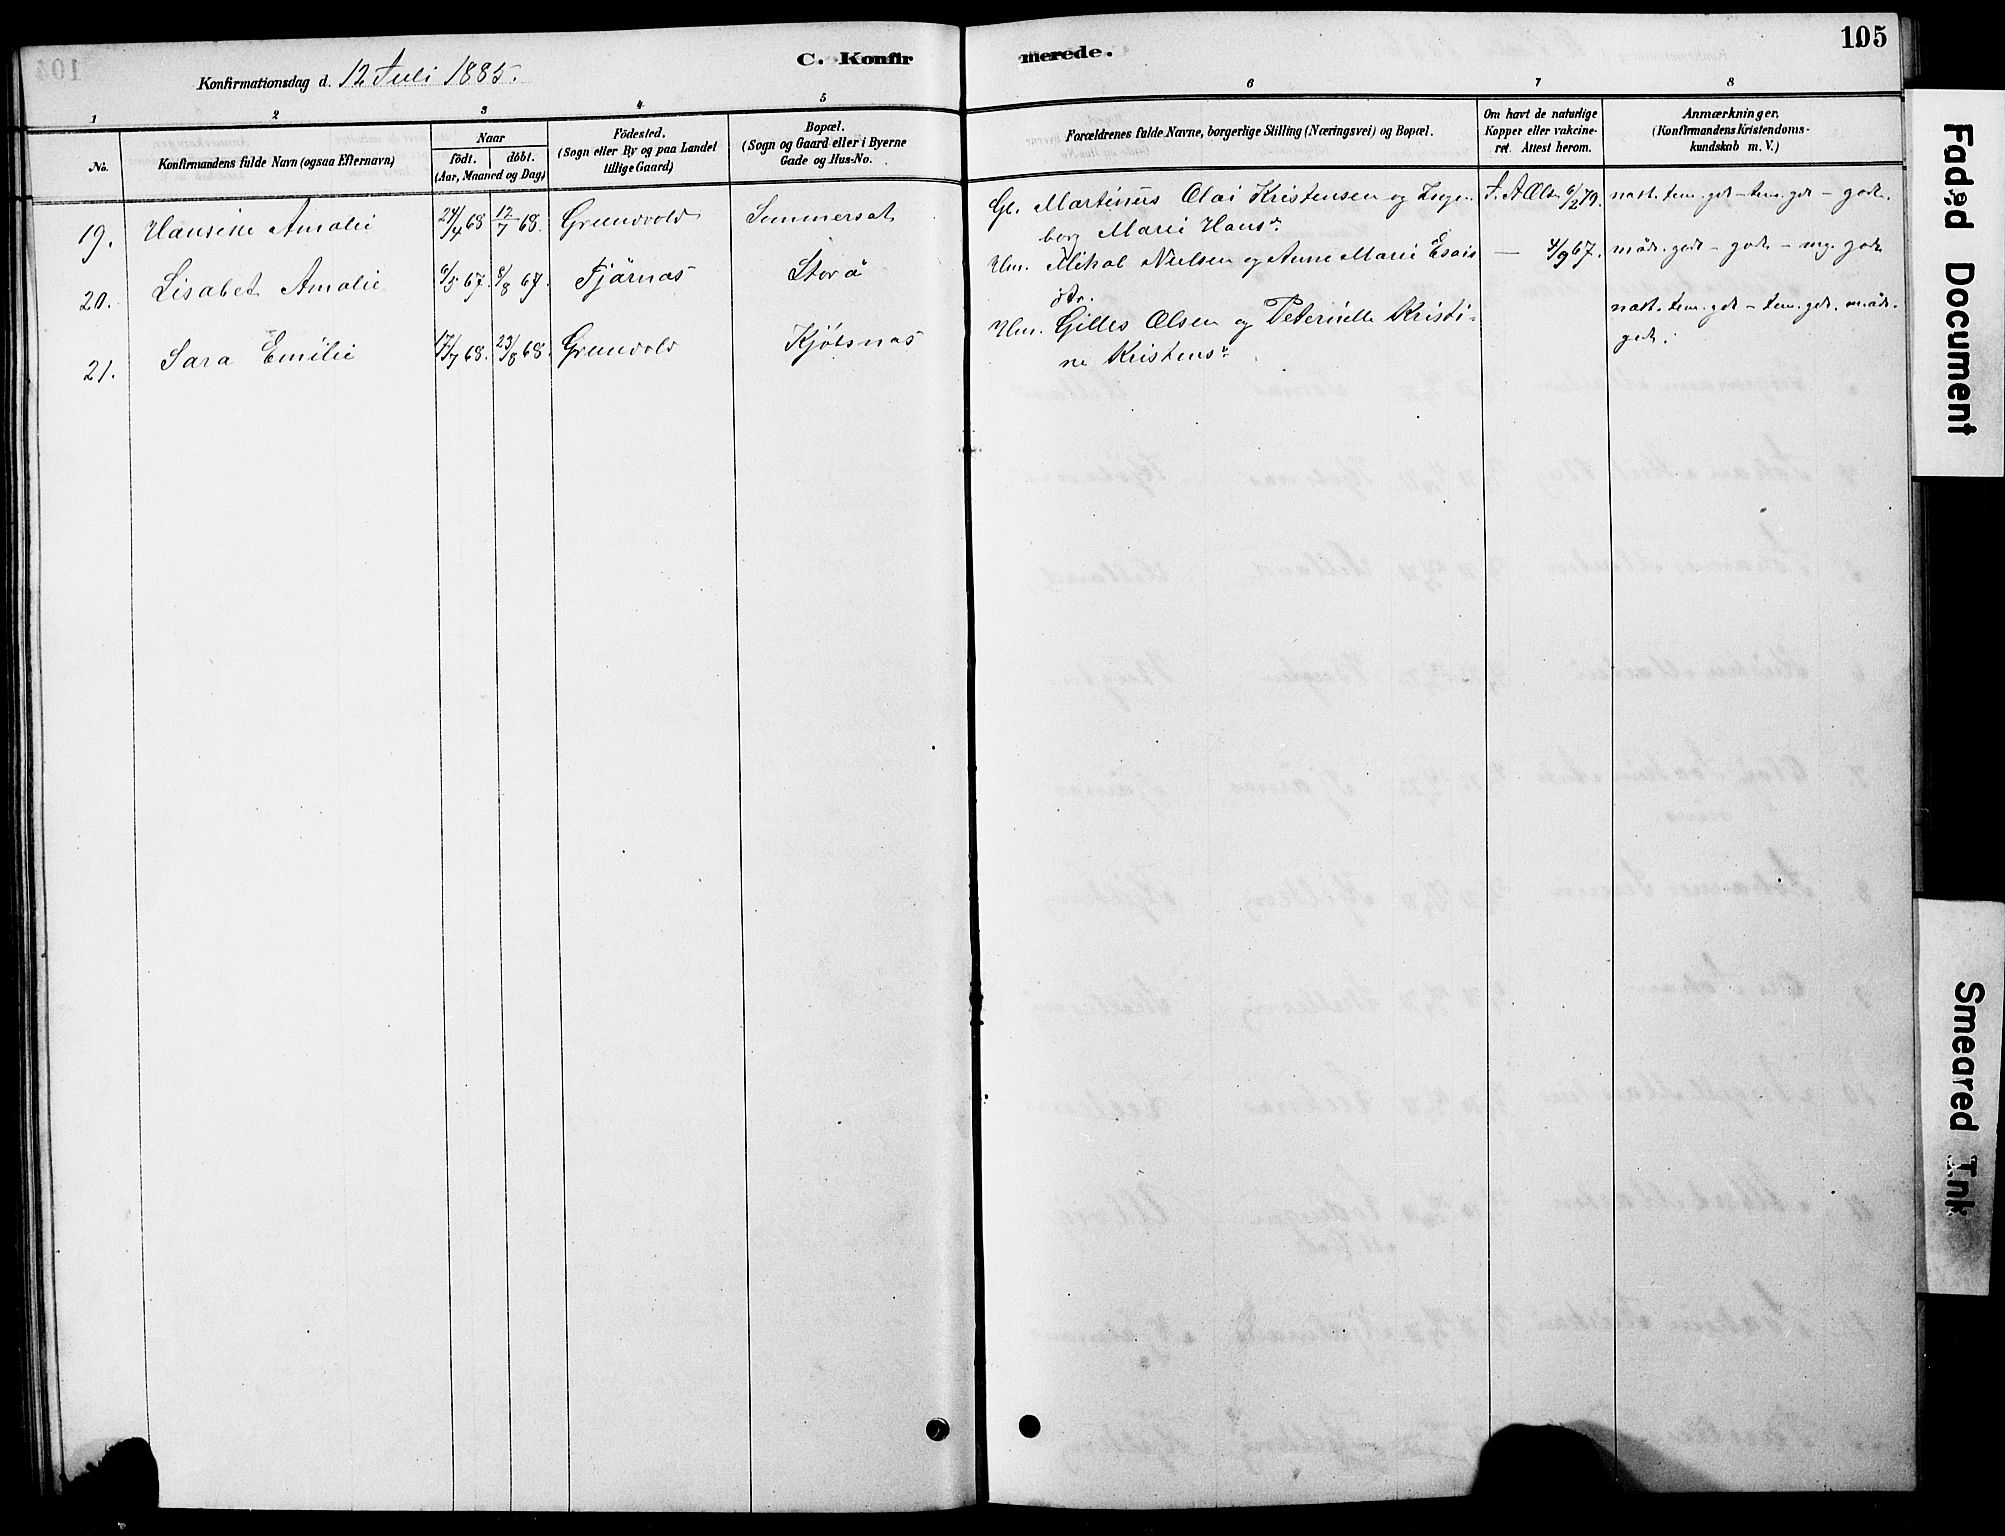 C. Konfirmerede.
105
Konfirmationsdag d. 12 Juli 1885.
1 2 3 4 5 6 7 8
No.
Konfirmandens fulde Navn (ogsaa Efternavn)
Naar
födt. döbt.
(Aar, Maaned og Dag)
Födested.
(Sogn eller By og paa Landet
tillige Gaard)
Bopæl.
(Sogn og Gaard eller i Byerne
Gade og Hus-No.
Forældrenes fulde Navne, borgerlige Stilling (Næringsvei) og Bopæl.
Om havt de naturlige
Kopper eller vakcine-
ret. Attest herom.
Anmærkninger.
(Konfirmandens Kristendoms-
kundskab m. V.)
19. Hansine Amalie 24/4 68 12/7 68. Grundvold Sommerset Gl. Martinus Olai Kristensen og Inge- 6/2 79. nast. tem. gdt - tem. gdt - godt.
borg Marie Hansdr.
20. Lisabet Amalie 6/5 67. 8/8 67. Tjärnas Storå Um. Mikal Nielsen og Anne Marie Esais - 4/9 67. mådl. gdt - godt - mg. godt
dtr.
21. Sara Emilie 17/7 68. 23/8 68. Grundvold Kjölsnas Um. Gilles Olsen og Peternille Kristi- nast. tem. gdt - tem. gdt. mådl.
ne Kristensdr. gdt.
Faded Document
Smeared Ink